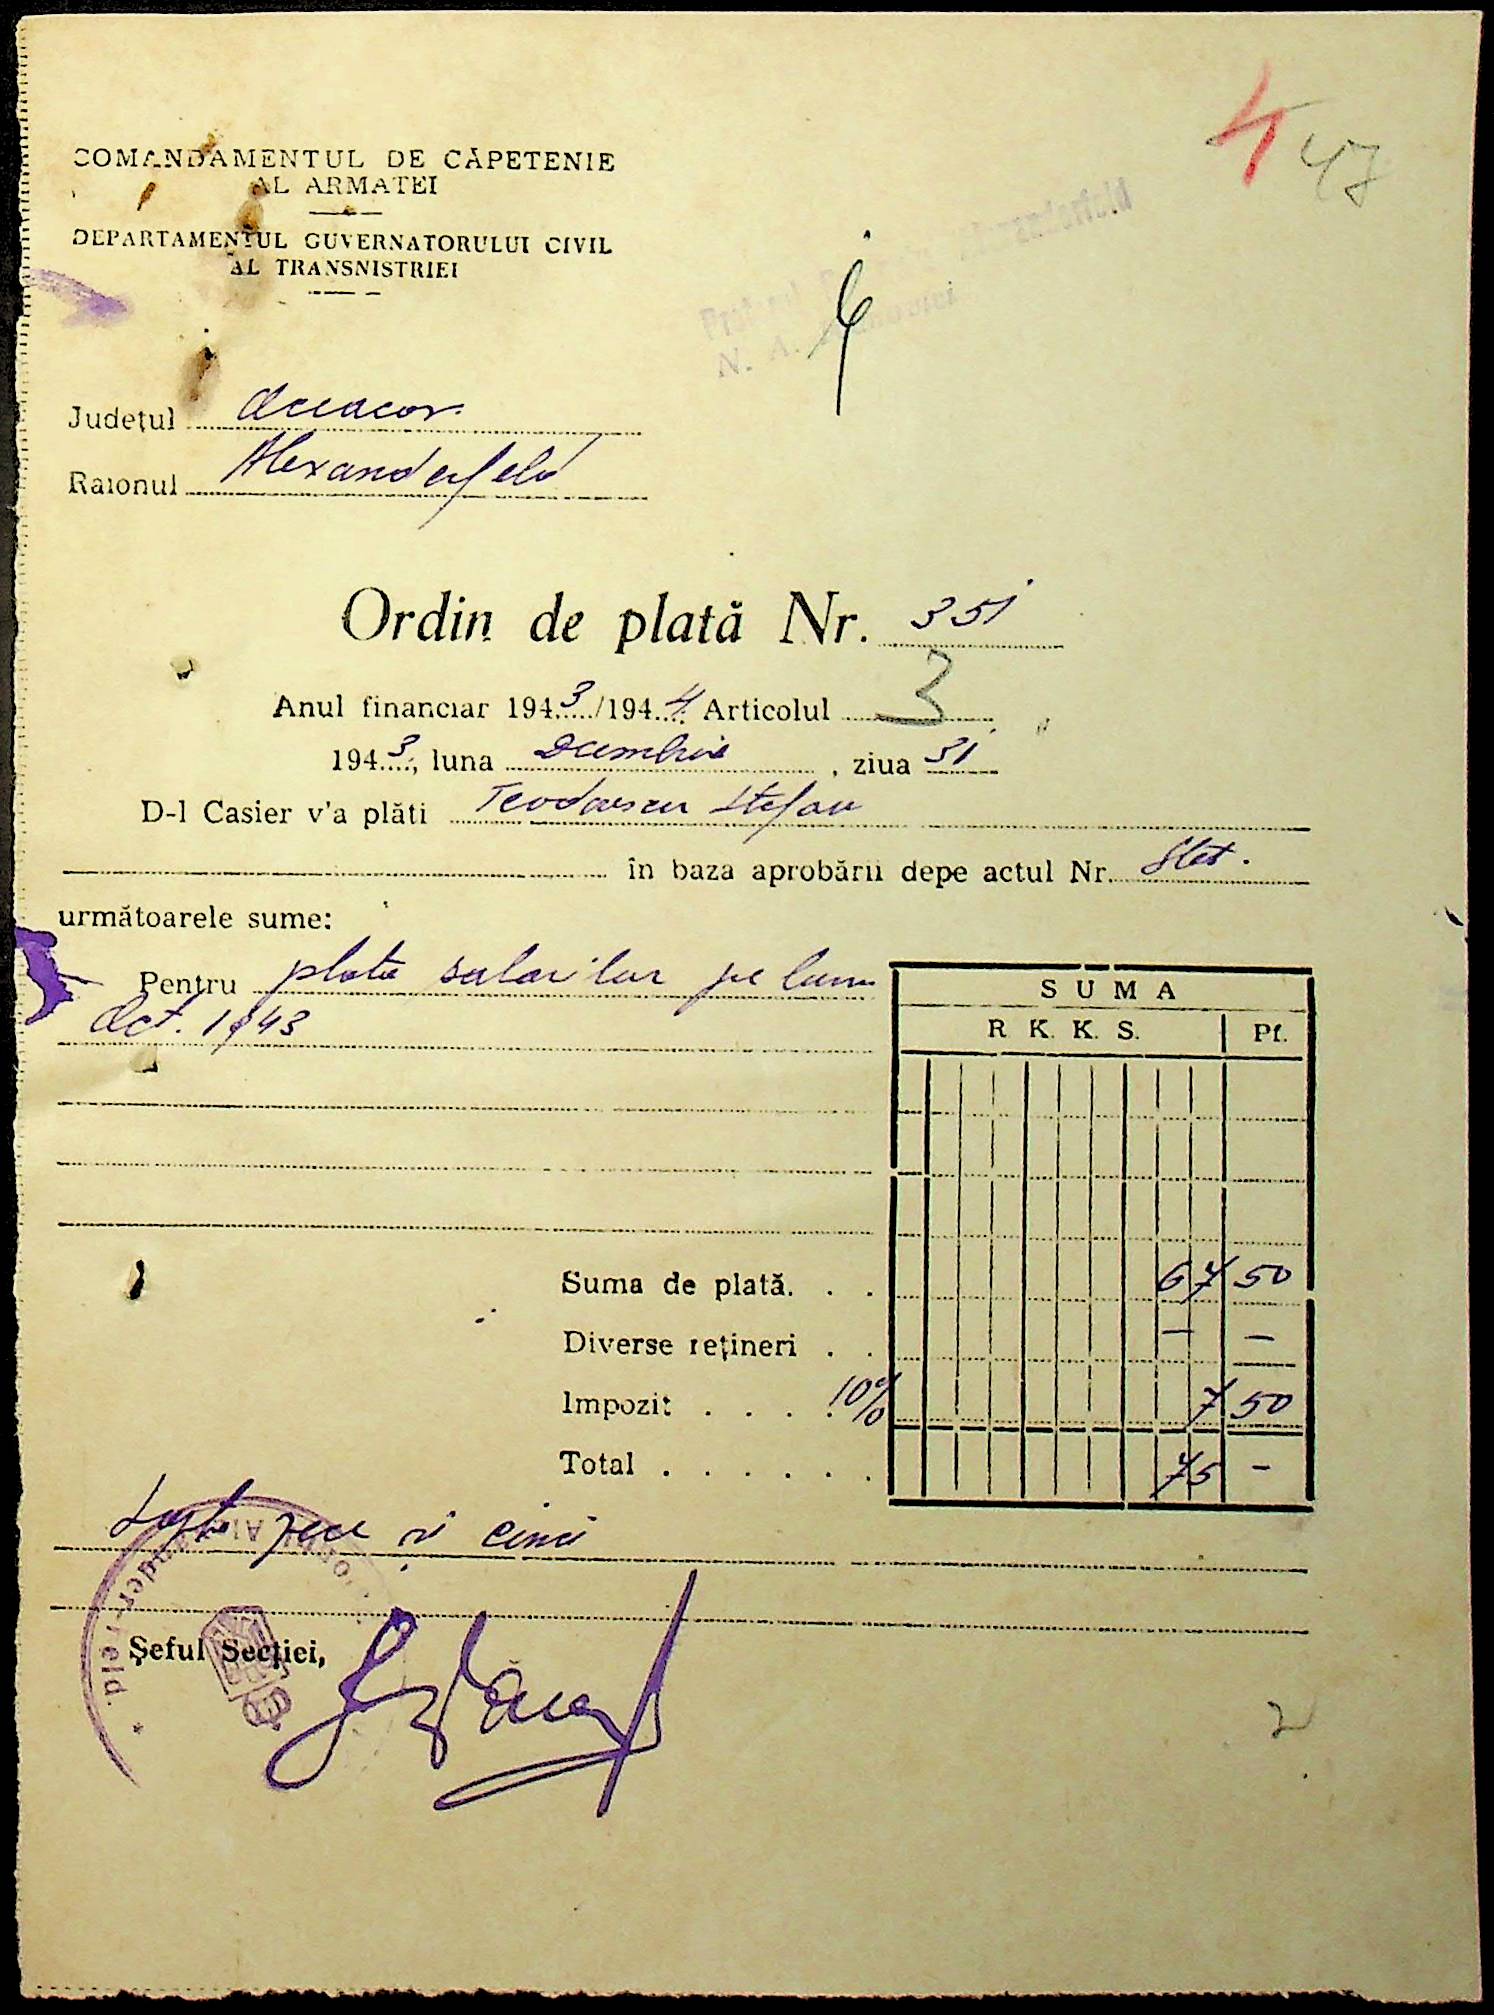 4 47
COMANDAMENTUL DE CĂPETENIE
AL ARMATEI
DEPARTAMENTUL GUVERNATORULUI CIVIL
AL TRANSNISTRIEI
N. A.
Județul Oceacov.
Raionul Alexanderfeld
Ordin de plată Nr. 351
3
Anul financiar 1943/1944 Articolul
1943, luna Decembrie, ziua 31
D-l Casier v'a plăti Teodorescu Stefan
în baza aprobării depe actul Nr. Stat.
următoarele sume:
Pentru plata salariilor pe luna
Oct. 1943
SUMA
R. K. K. S. Pf.
Suma de plată. . . 67 50
Diverse rețineri . . — —
Impozit . . . . 10% 7 50
Total . . . . . . 75 —
Șapte zece și cinci
Șeful Secției,
2